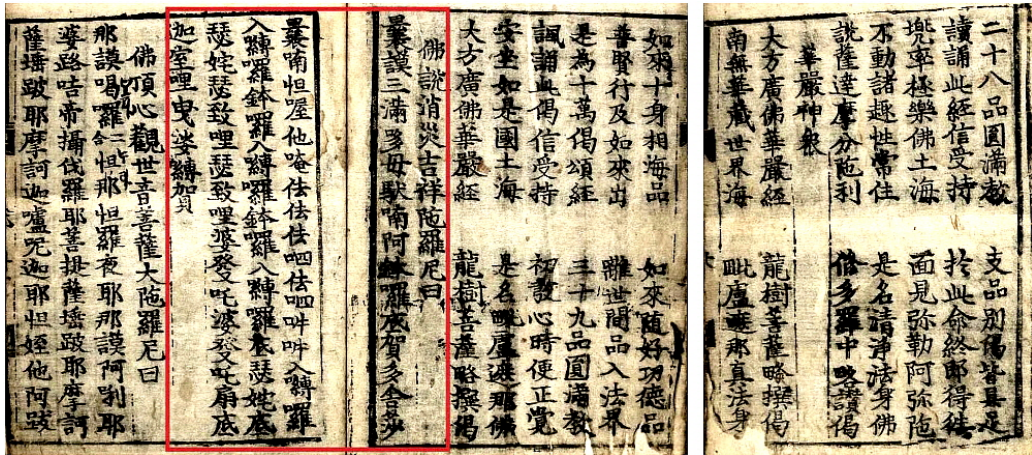 二十八品圓滿教 支品別偈皆具足
讀誦此經信受持 扵此命終即得徃
兜率極樂佛土海 面見弥勒阿弥陁
不動諸趣性常住 是名清淨法身佛
說薩達摩分陁利 脩多羅中略讃偈
華嚴神衆
大方廣佛華嚴經 龍樹菩薩略撰偈
南無華藏世界海 毗盧遮那真法身
如來十身相海品 如來随好功德品
普賢行及如來出 離世間品入法界
是為十萬偈頌經 三十九品圓滿教
諷誦此偈信受持 初發心時便正覺
安坐如是國土海 是名毗盧遮那佛
大方廣佛華嚴經 龍樹菩薩略撰偈
佛說消災吉祥陁羅尼曰
曩謨三滿多毋馱喃阿鉢羅底賀多舍娑
曩喃怛囉他唵佉佉佉呬佉呬吽吽入嚩羅
入嚩羅鉢羅入嚩羅鉢羅入嚩羅底瑟姹底
瑟姹瑟致哩瑟致哩婆發吒婆發吒扇底
迦室哩曳娑嚩賀
佛頂心觀世音菩薩大陁羅尼曰
那謨喝羅怛那怛羅夜耶那謨阿唎耶
婆路咭帝攝伐羅耶菩提薩墖跛耶摩訶
薩墖跛耶摩訶迦嚧呢迦耶怛姪他阿跋